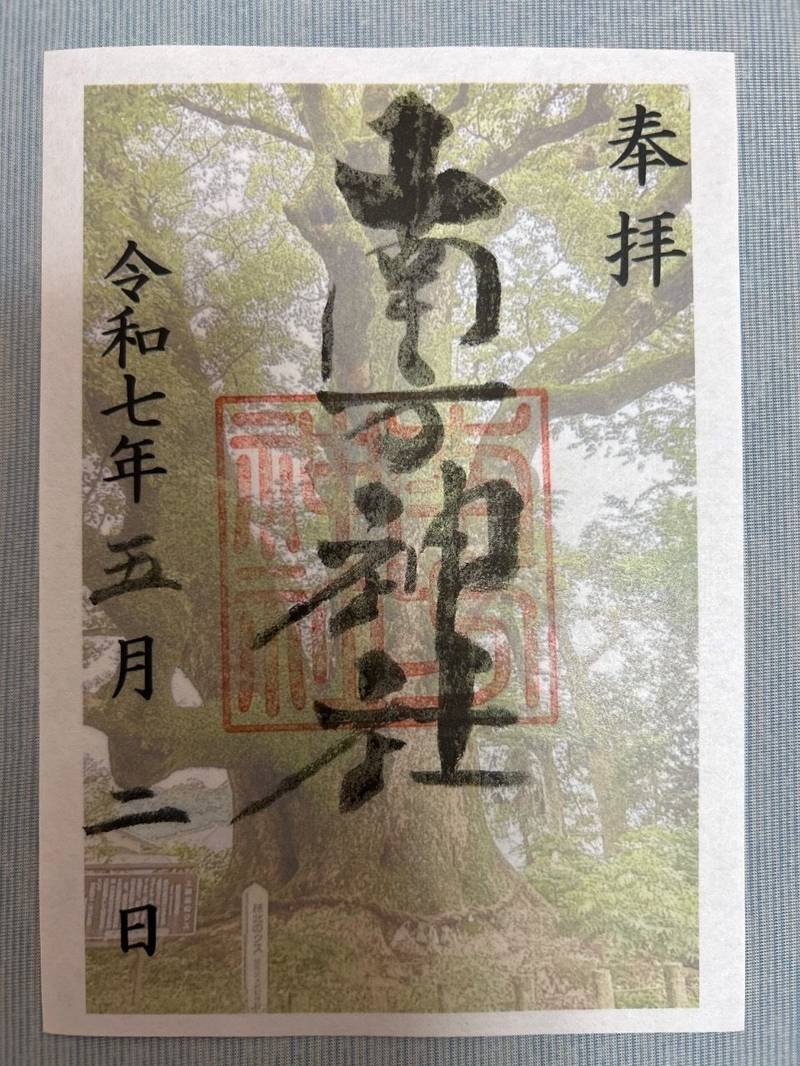 奉拝
南方神社
令和七年五月二日